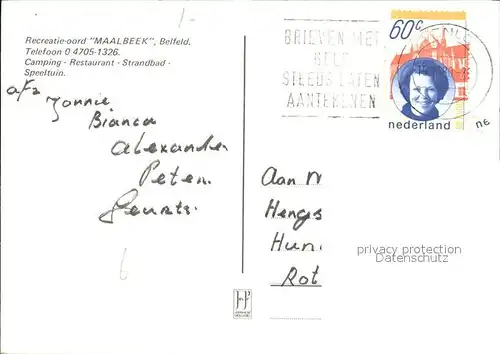 1-
Recreatie-oord "MAALBEEK", Belfeld.
Telefoon 0 4705-1326.
Camping - Restaurant - Strandbad -
Speeltuin.
afz Jonnie
Bianca
Alexander
Peter
Geurts
6
BRIEVEN MET
GELD
STEEDS LATEN
AANTEKENEN
60c
nederland
Aan
Hengs
Hun
Rot
privacy protection
Datenschutz